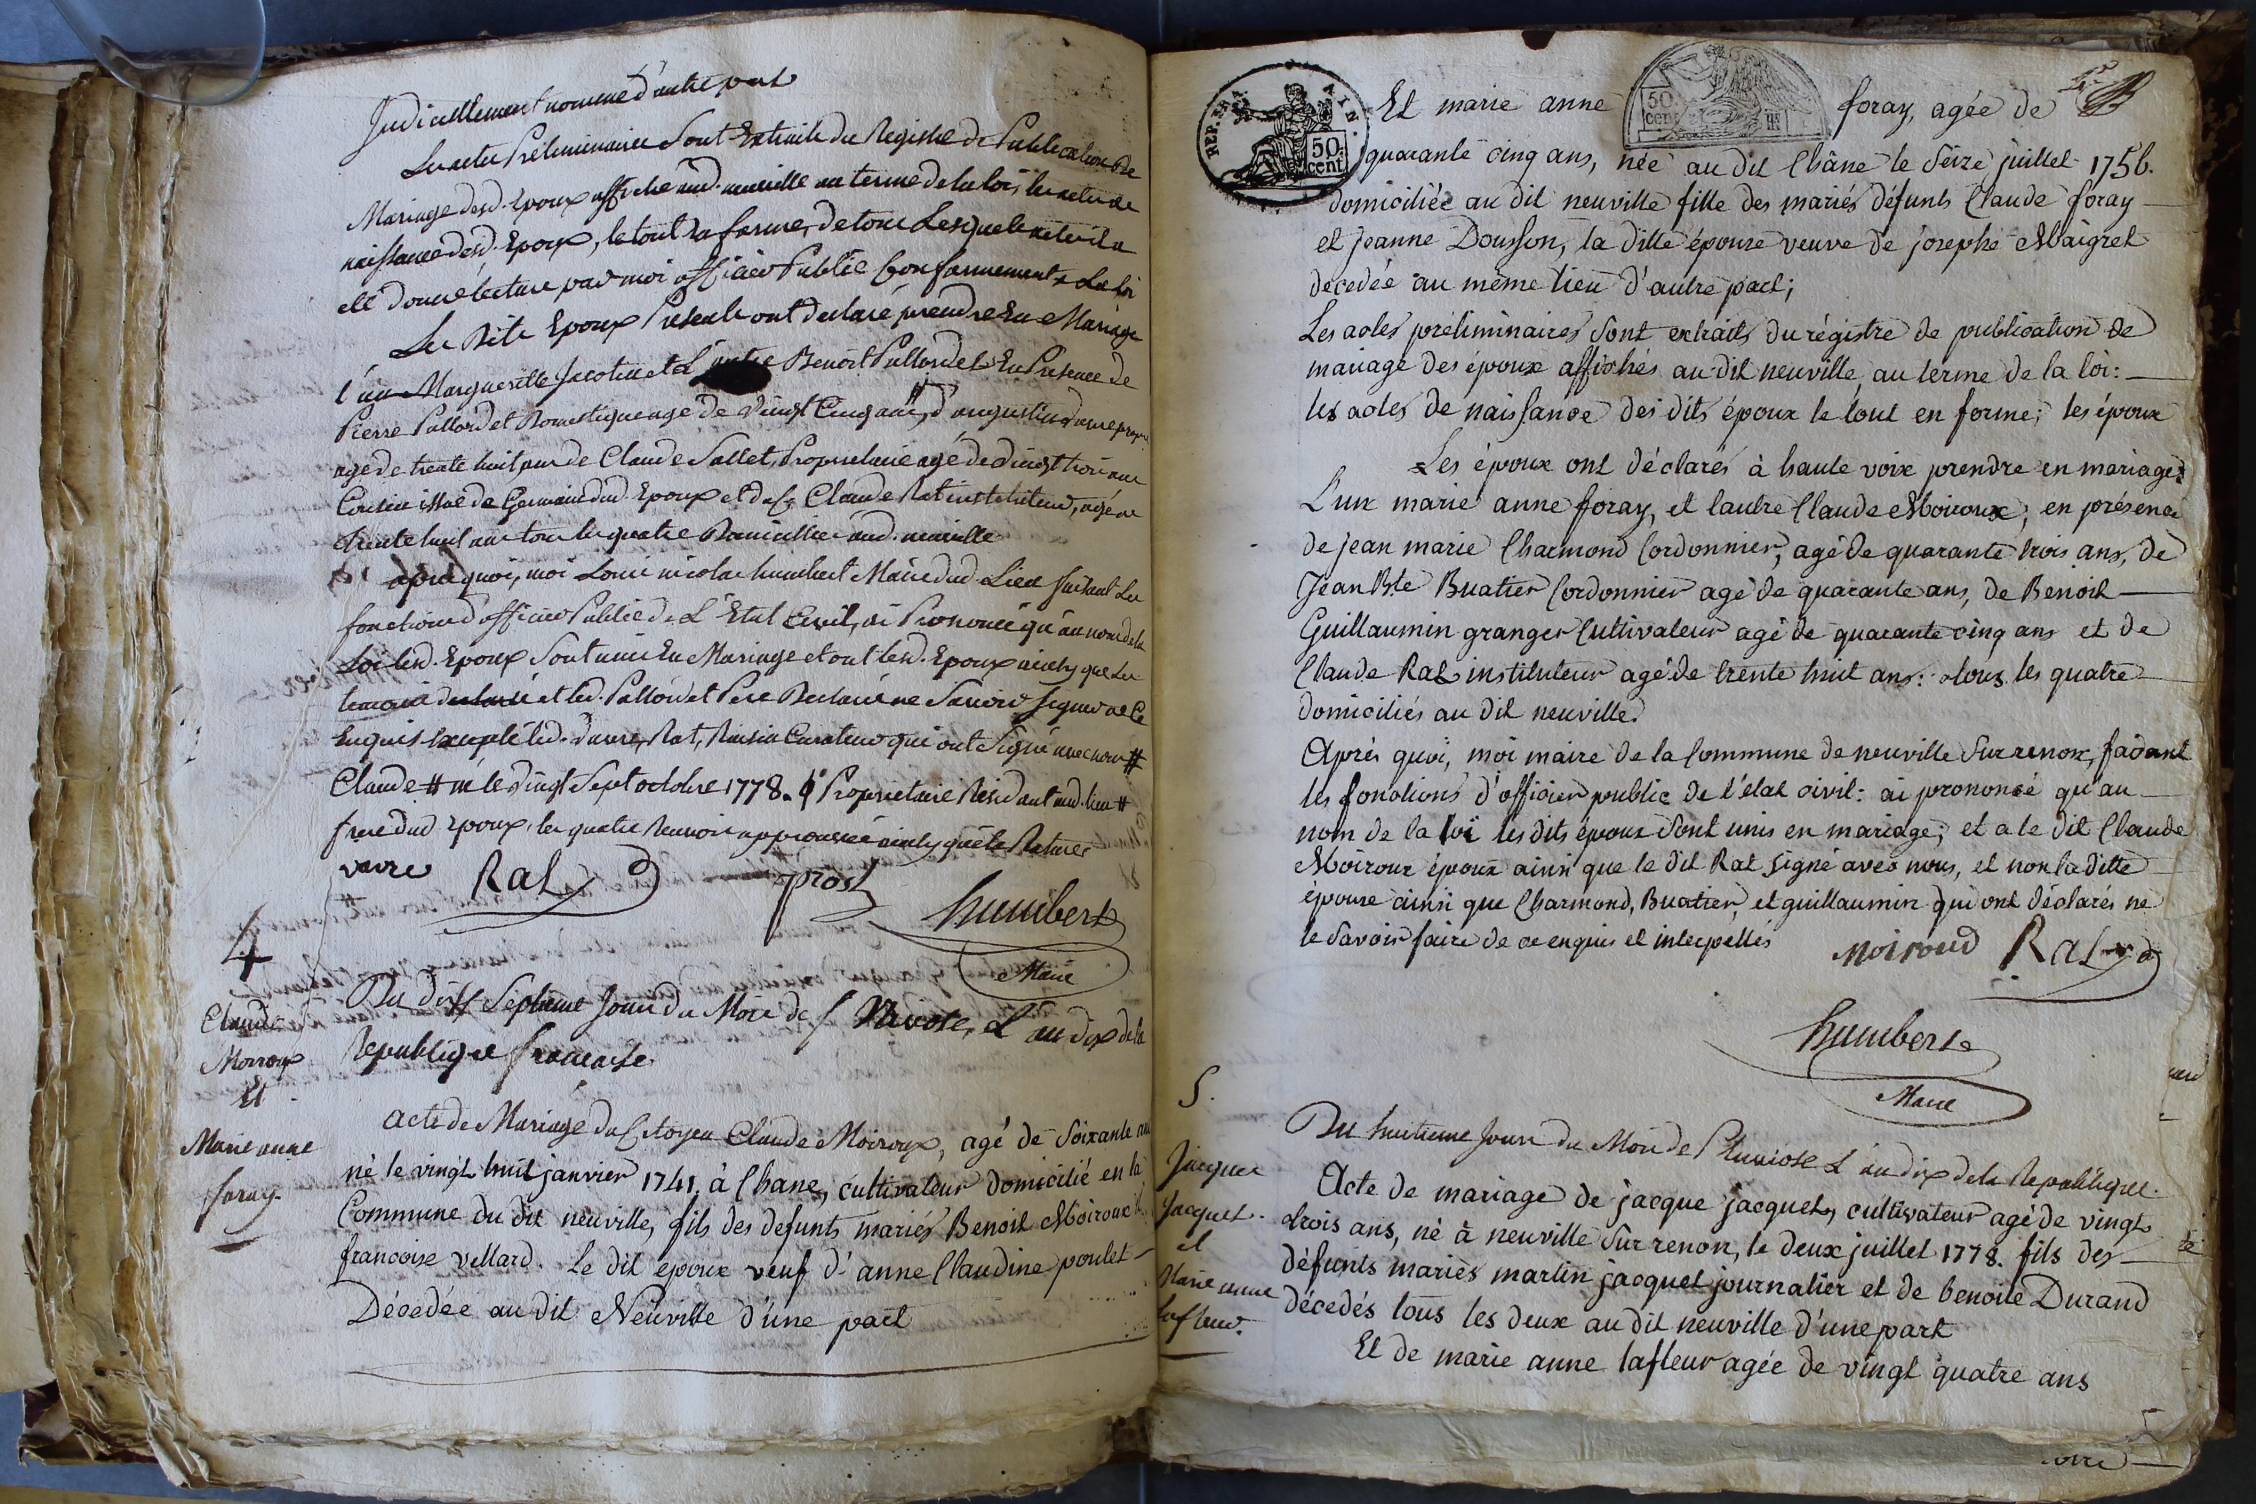 Judiciellement nommé d'autre part
Les actes Préliminaires Sont Extraits du Registre de Publication de
Mariage desd. Epoux affiché aud. neuville au terme de la loi, les actes de
naissance desd. Epoux, le tout en forme, de tous Lesquels actes il a
été donné lecture par moi officier Public Conformement a La loi
Les Dits Epoux Présents ont declaré prendre En Mariage
l'un Margueritte Jacotin et L'autre Benoit Pallordet En Présence de
Pierre Pallordet Domestique age de Vingt Cinq ans, # d'augustin
agé de trente huit ans de Claude Sallet, Proprietaire agé de vingt trois ans
Cousin issus de Germain dud. Epoux et du C. Claude Rat instituteur, agé de
trente huit ans tous les quatre Domicilliés aud. neuville
après quoi, moi Louis nicolas humbert Maire dud. Lieu faisant Les
fonctions d'officier Public de L'Etat Civil, ai Prononcé qu'au nom de la
Loi lesd. Epoux Sont unis En Mariage et ont lesd. Epoux ainsy que Les
temoins declaré et led. Pallordet Pere Declaré ne Savoir signer de Ce
Enquis Excepté led. vavre, Rat, Curateur qui ont Signé avec nous #
Claude # né le vingt Sept octobre 1778. Proprietaire Résidant aud. lieu #
frere dud Epoux, les quatre Renvois approuvés ainsy que la Rature
vavre Rat prost
humbert
Maire
4
Claude
Moiroux
Et
Marie anne
foray
Du dix Septieme Jour du Mois de Nivose, L'an dix de la
Republique francaise
acte de Mariage du Citoyen Claude Moiroux, agé de Soixante ans
né le vingt huit janvier 1741, à Chane, cultivateur domicilié en la
Commune du dit neuville, fils des defunts mariés Benoit Moiroux et
francoise vellard. Le dit époux veuf d'anne Claudine poulet
Décedée au dit Neuville d'une part
REP. FRA. AIN.
50 cent
50 cent AIN
Et marie anne foray, agée de
quarante cinq ans, née au dit Châne le Seize juillet 1756.
domiciliée au dit neuville fille des mariés défunts Claude foray
et jeanne Dousson, la ditte épouse veuve de josephe Maigret
décedée au même lieu d'autre part;
Les actes préliminaires sont extraits du régistre de publication de
mariage des époux affichés au dit neuville au terme de la loi:
les actes de naissance des dits époux le tout en forme; les époux
Les époux ont déclarés à haute voix prendre en mariage
L'un marie anne foray, et lautre Claude Moiroux; en présence
de jean marie Charmond Cordonnier, agé de quarante trois ans, de
Jean Bte Buatier Cordonnier agé de quarante ans, de Benoit
Guillaumin granger Cultivateur agé de quarante cinq ans et de
Claude Rat instituteur agé de trente huit ans: tous les quatre
domiciliés au dit neuville.
Après quoi, moi maire de la Commune de neuville Sur renon, faisant
les fonctions d'officier public de l'état civil: ai prononcé qu'au
nom de la loi les dits époux sont unis en mariage; et a le dit Claude
Moiroux époux ainsi que le dit Rat signé avec nous, et non la ditte
épouse ainsi que Charmond, Buatier, et guillaumin qui ont déclarés ne
le Savoir faire de ce enquis et interpellés moiroud Rat
humbert
Maire
5.
Jacque
Jacquet.
et
Marie anne
lafleur.
Du huitieme Jour du Mois de Pluviose L'an dix de la Republique.
Acte de mariage de jacque jacquet, cultivateur agé de vingt
trois ans, né à neuville Sur renon, le deux juillet 1778. fils des
défunts mariés martin jacquet journalier et de benoite Durand
décedés tous les deux au dit neuville d'une part
Et de marie anne lafleur agée de vingt quatre ans